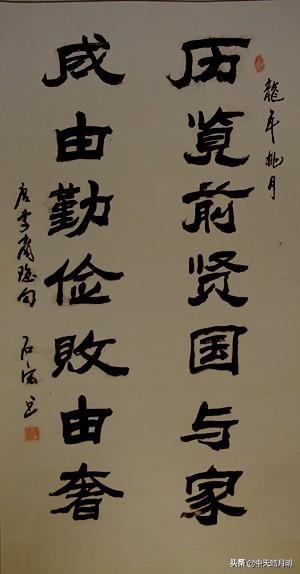 龍年桃月
历览前贤国与家
成由勤俭敗由奢
唐李商隐句
头条@中天皓月明